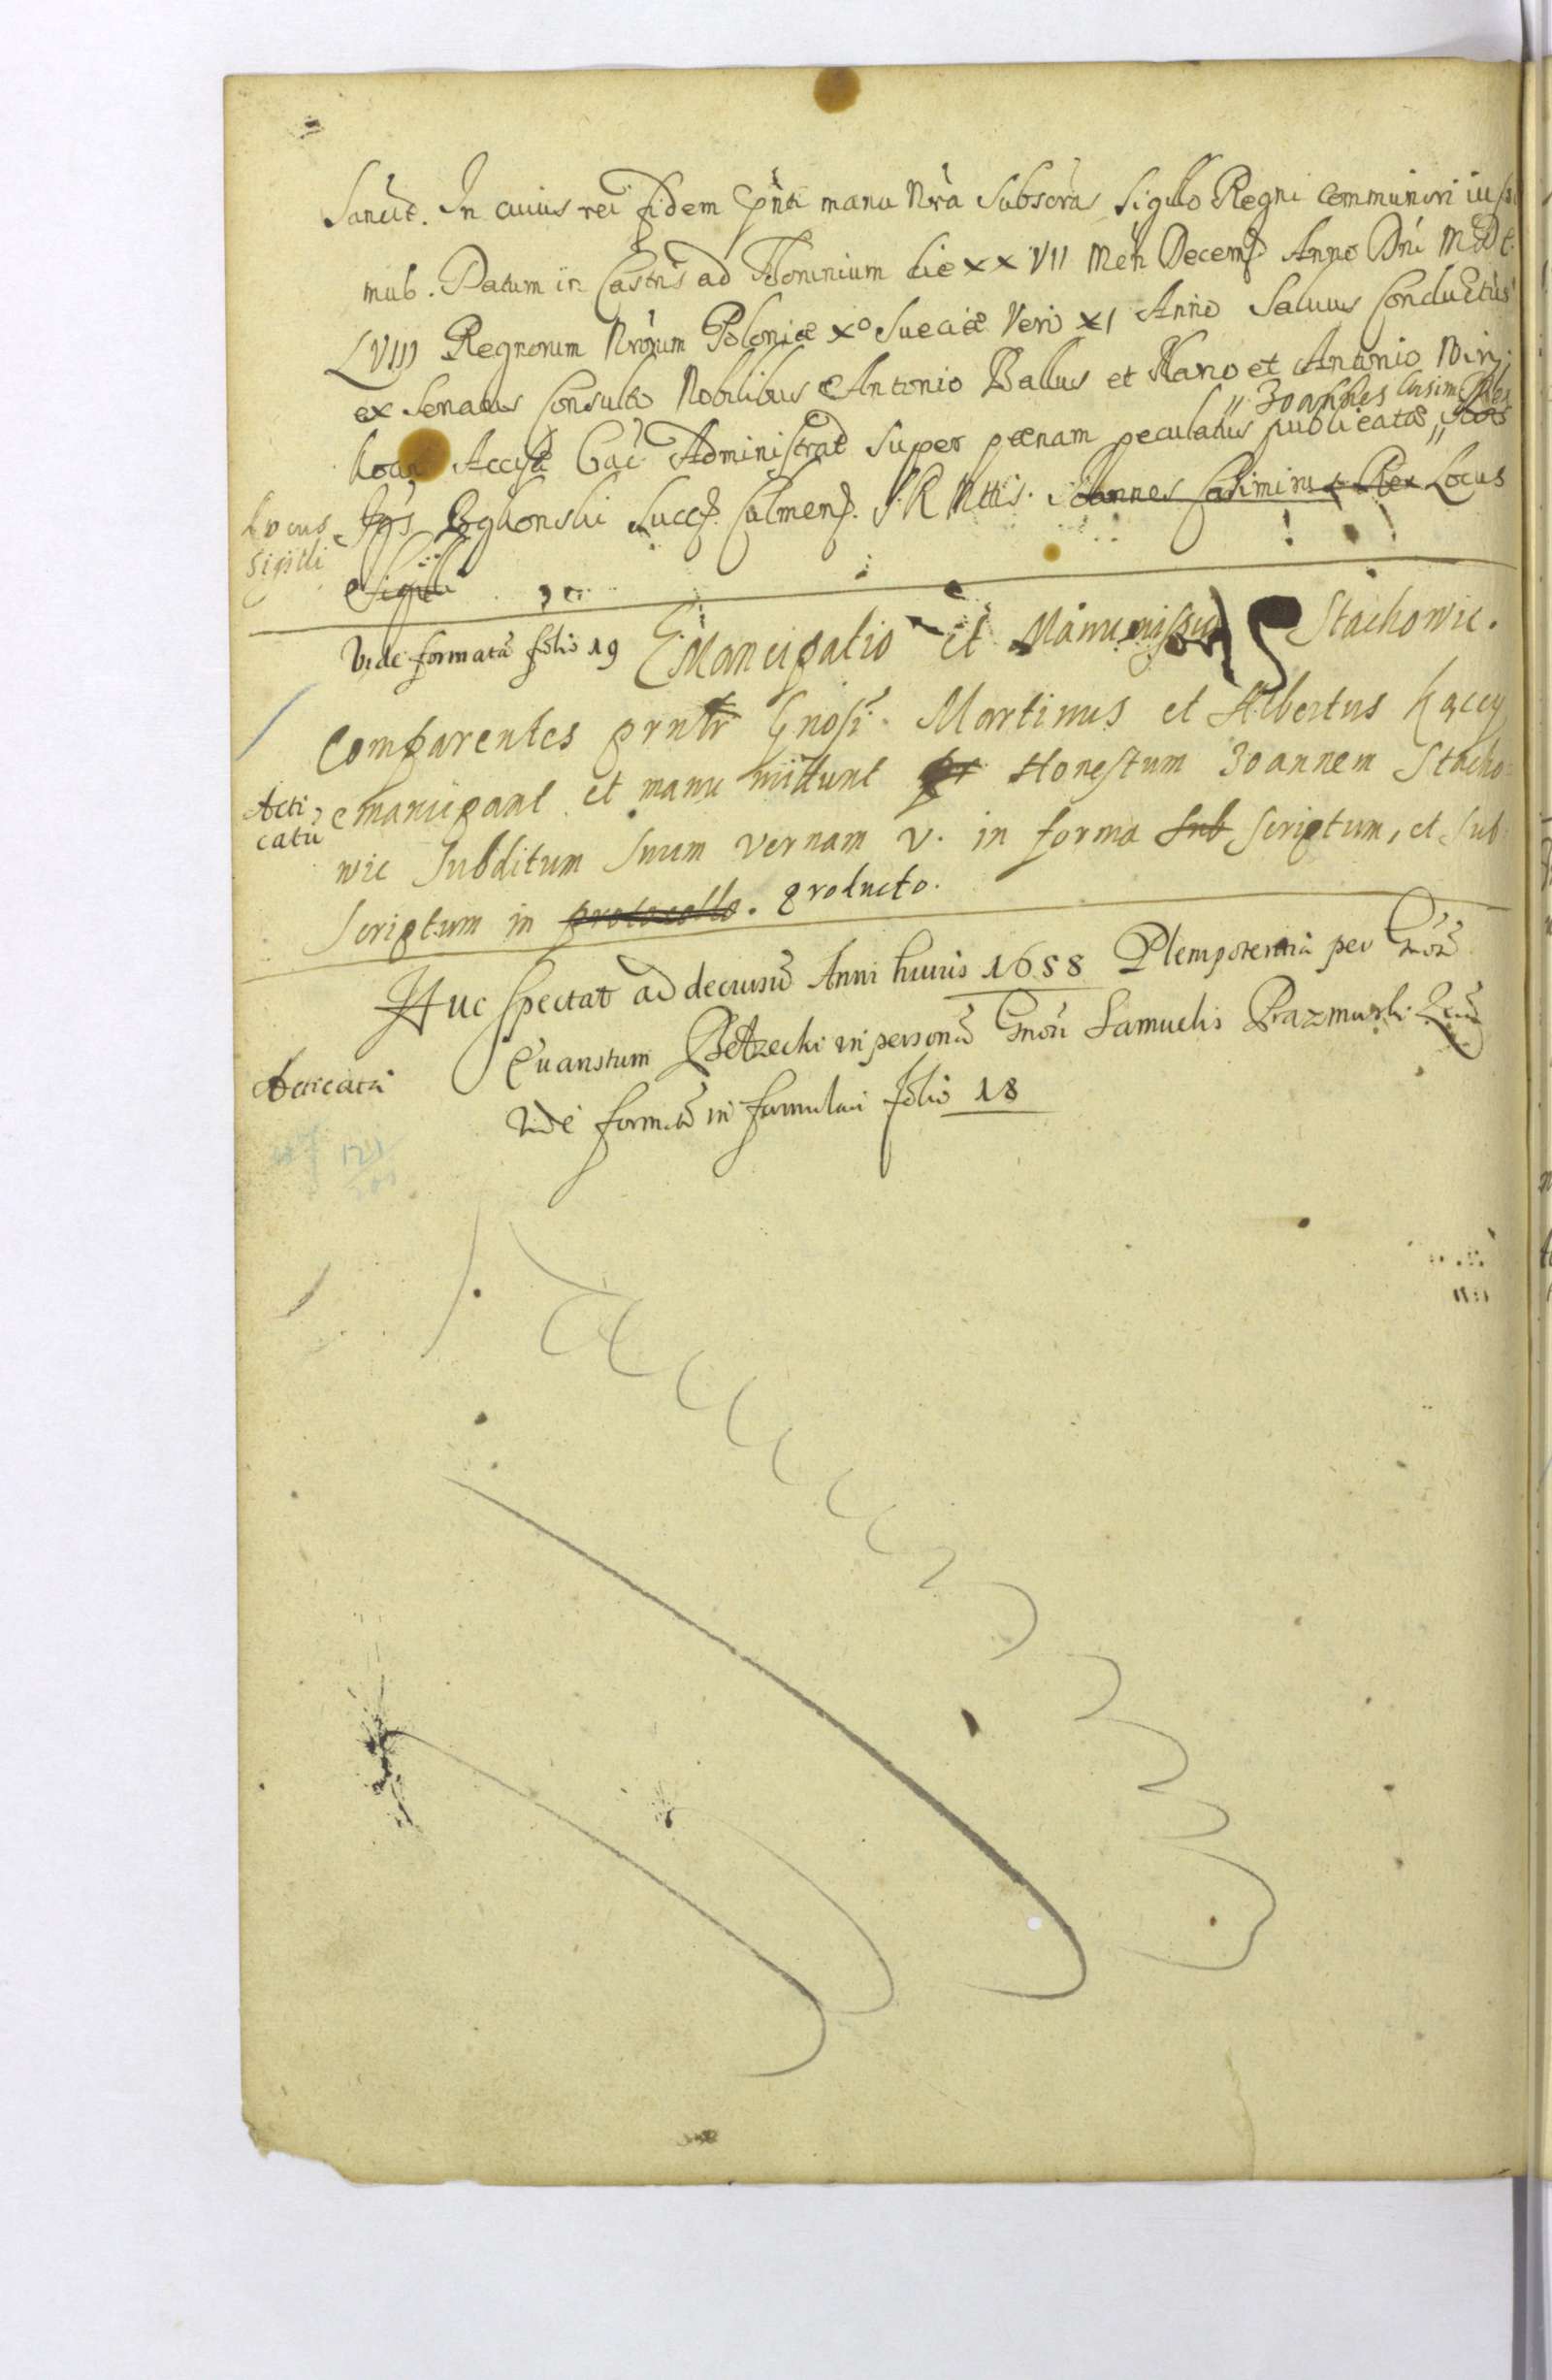 Sancit. In cuius rei fidem pnti manu Nra Subscras Sigillo Regni Communiri iussi
mus. Datum in Castris ad Thorunium die XXVII Men Decemb Anno Dni MDC
LVIII Regnorum Nrorum Poloniæ X° Sueciæ Vero XI Anno Saluus Conductus
ex Senatus Consulto Nobilibus Antonio Ballus et Hano et Antonio
Administrat Super pænam peculatus publicatæ
Joannes Casim Rex
Culmens. S. R. Mttis. Joannes Casimirus Rex Locus
Locus
Sigilli
Sigilli
Vide formatã folio 19 Emancipatio et Manumissio Stachowic.
Comparentes prntr Gnosi. Martinus et Albertus Kącey
emancipant et manu mittunt Honestum Joannem Stacho:
Acti
catũ
wic Subditum Suum Vernam v. in forma Sub Scriptum, et Sub:
Scriptum in protocollo. Producto.
Huc Spectat ad decursũ Anni huius 1658 Plenipotentia per Gnosũ
in personã Gnosi Samuelis Prazmuski
Acticata
Vide formatã in formulari folio 18